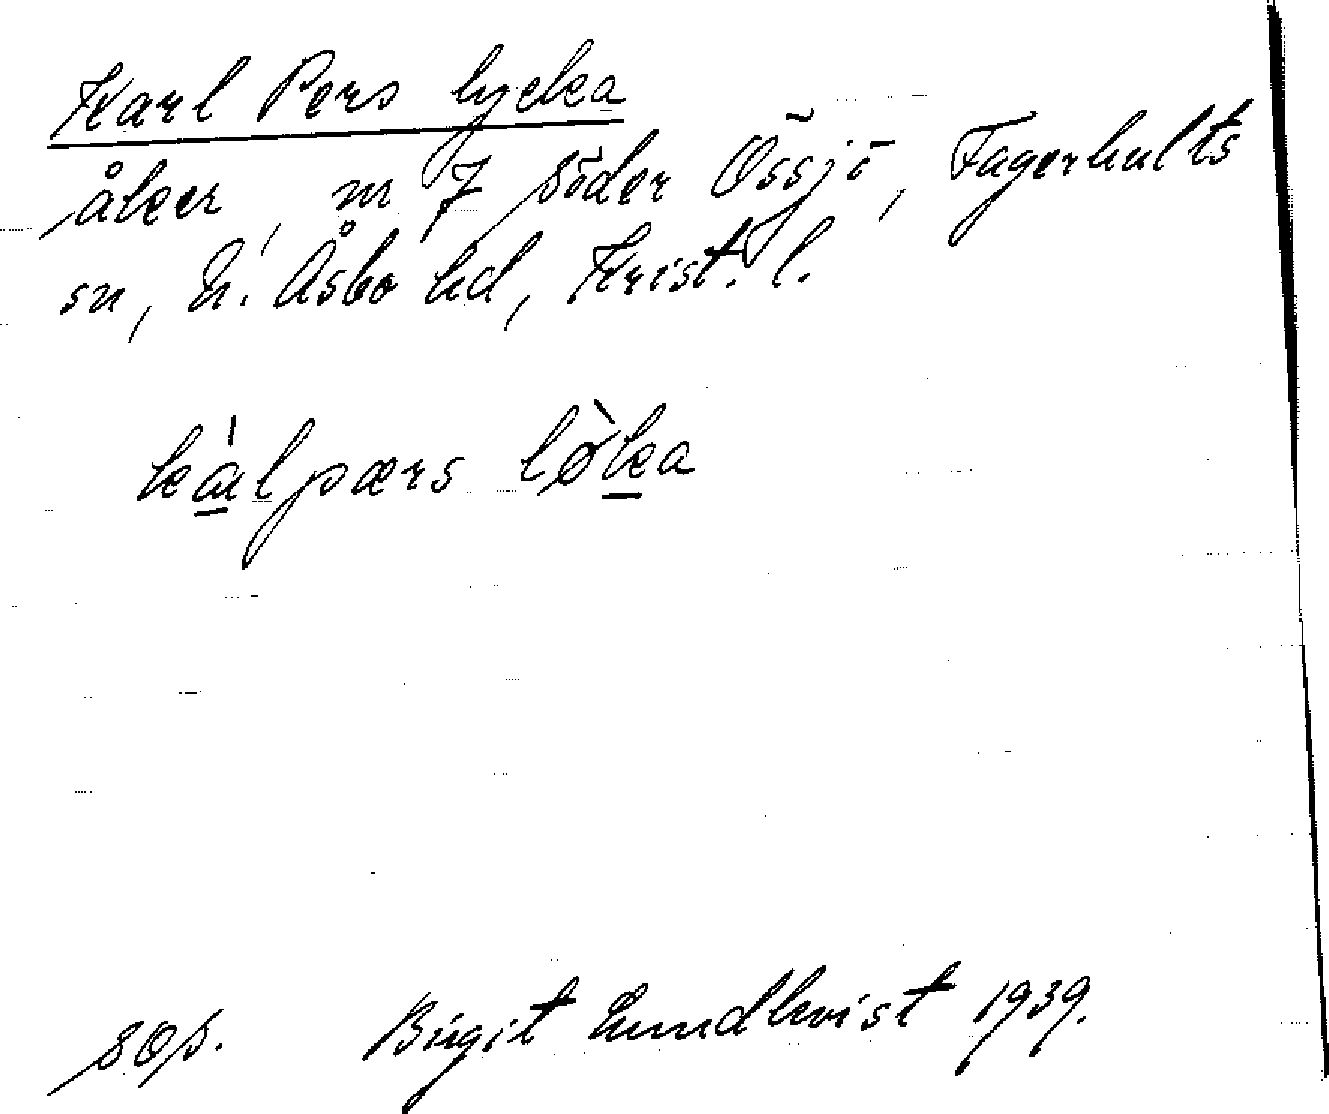 Karl Pers lycka
åker, nr 7 Söder Össjö, Fagerhults
sn, N. Åsbo hd, Krist. l.
kálpærs lø̀ka
sop.
Birgit Lundkvist 1939.